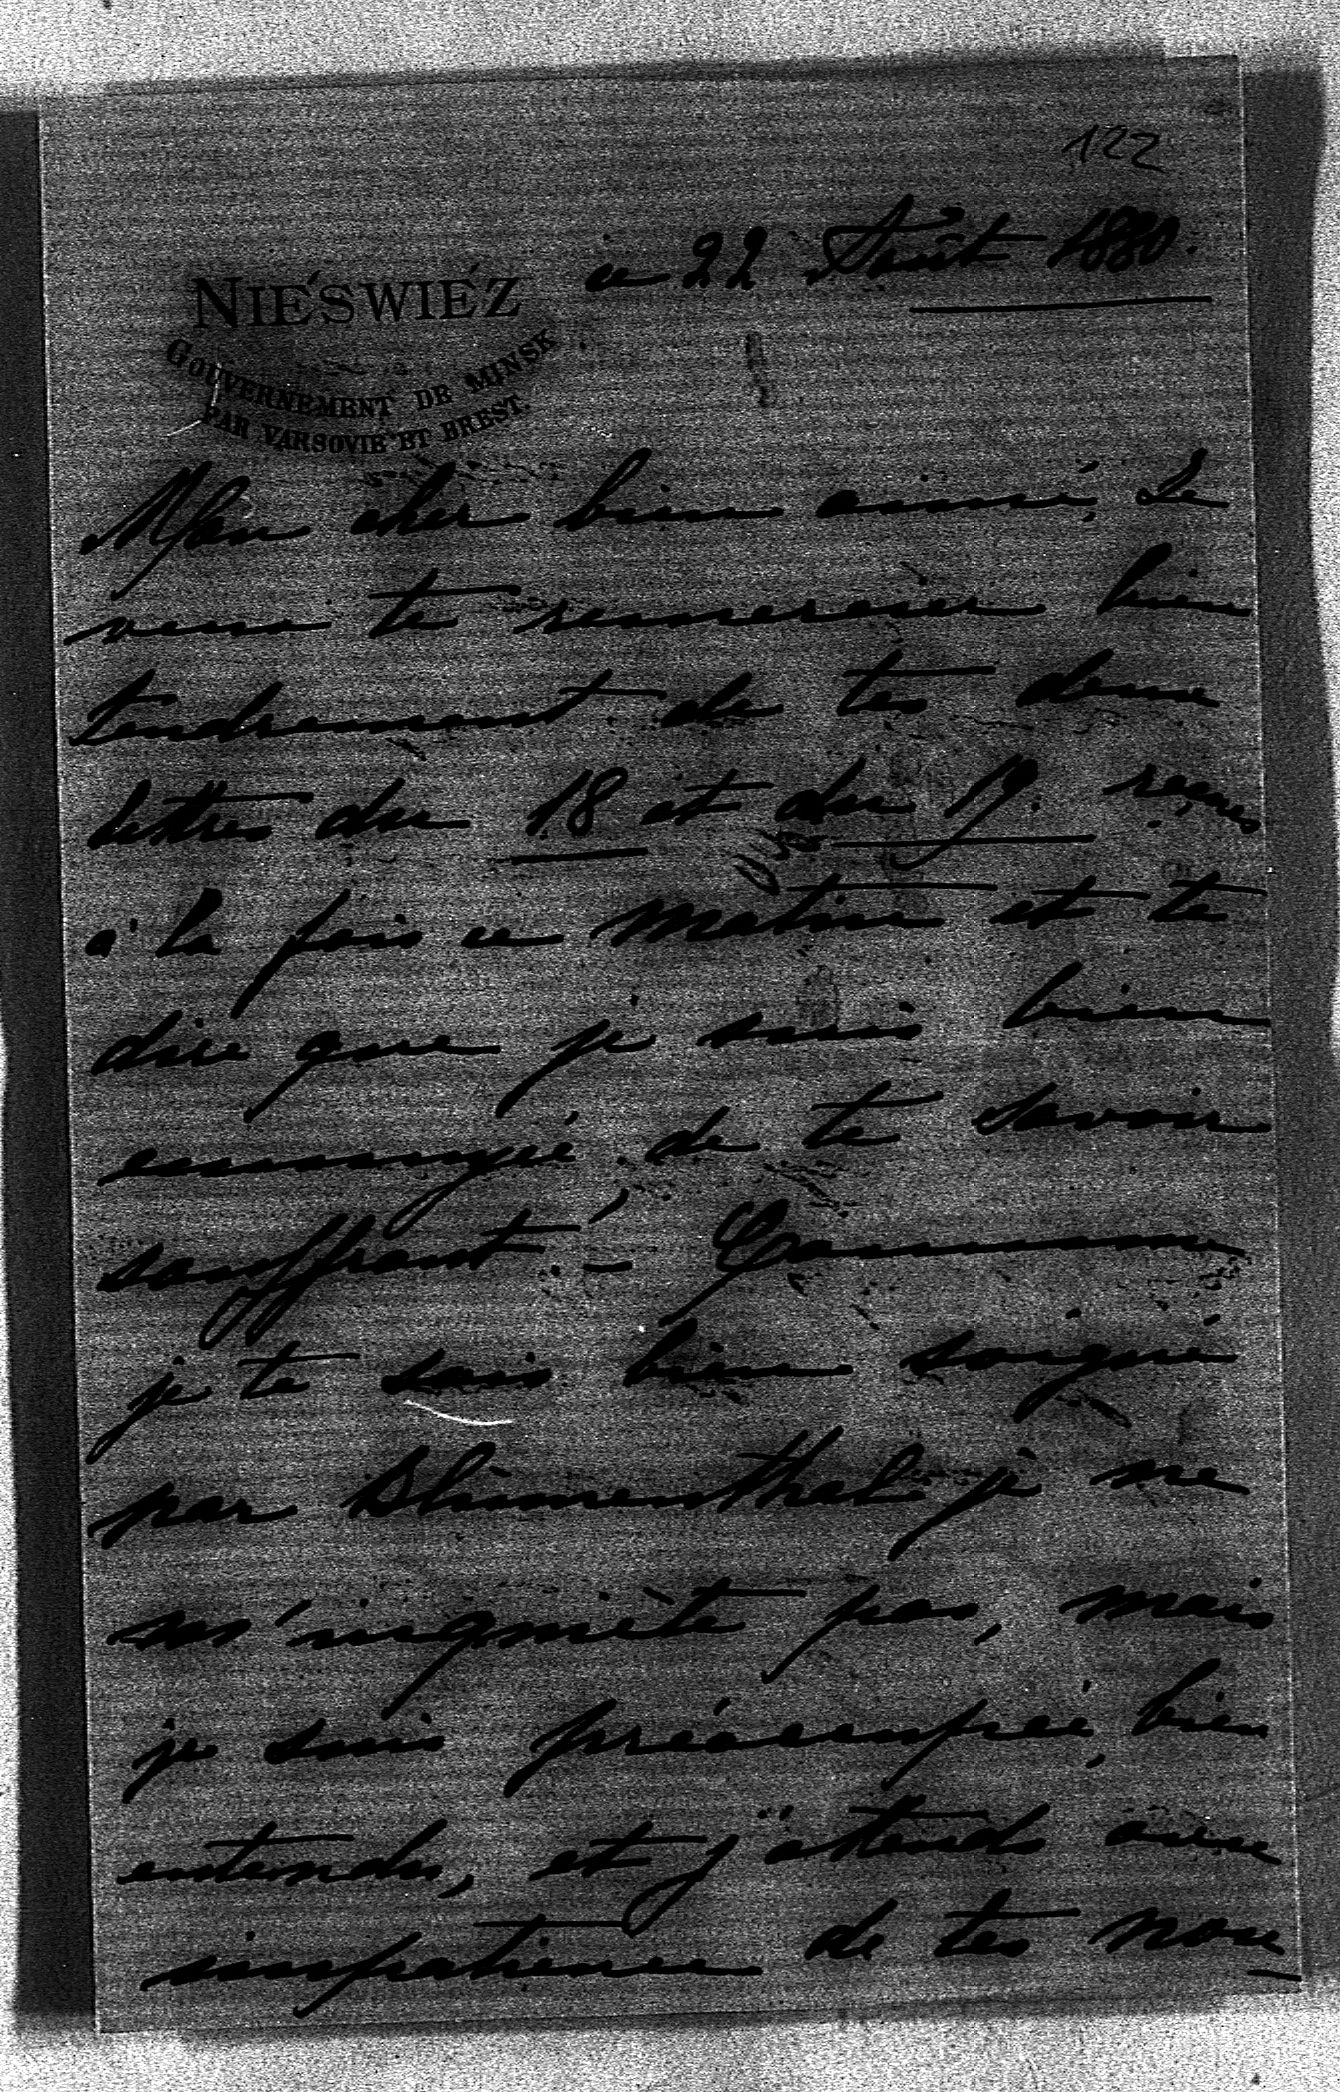 122
ce 22 Août 1880.
NIEŚWIÉZ
GOUVERNEMENT DE MINSK
PAR VARSOVIE ET BREST.
Mon cher bien aimé, Je
viens te remercier bien
tendrement de tes deux
lettres du 18 et du 19. reçues
à la fois ce matin et te
dire que je suis bien
ennuyée de te savoir
souffrant! – Comme
je te sais bien soigné
par Blumenthal je ne
m'inquiète pas, mais
je suis préoccupée, bien
entendu, et j'attends avec
impatience de tes nou-